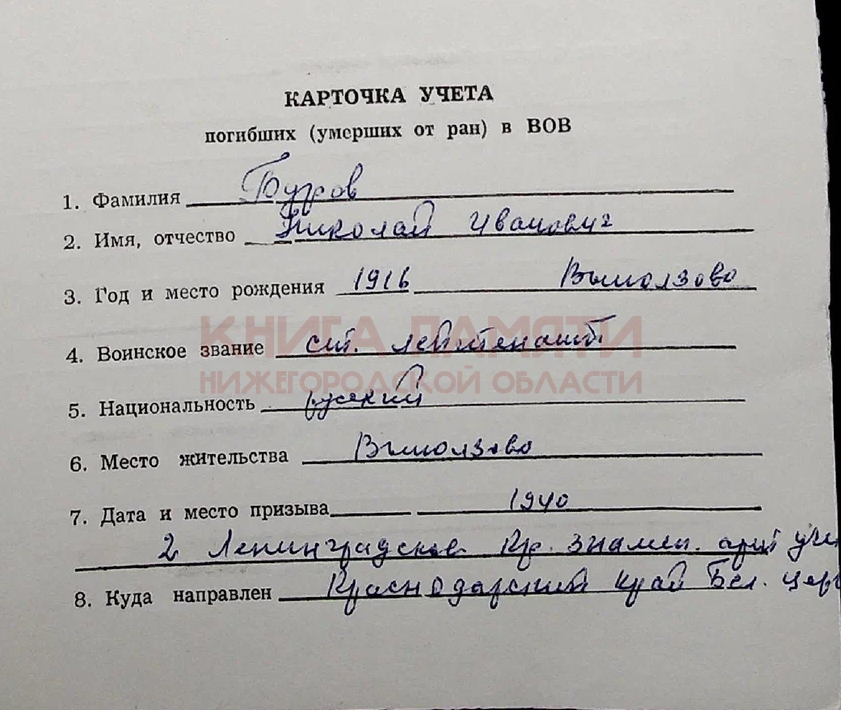 КАРТОЧКА УЧЕТА
погибших (умерших от ран) в ВОВ
1. Фамилия Бугров
2. Имя, отчество Николай Иванович
3. Год и место рождения 1916 Выползово
КНИГА ПАМЯТИ
4. Воинское звание ст. лейтенант
НИЖЕГОРОДСКОЙ ОБЛАСТИ
5. Национальность русский
6. Место жительства Выползово
7. Дата и место призыва 1940
2 Ленинградское Кр. знамен. арт
8. Куда направлен Краснодарский край Бел.